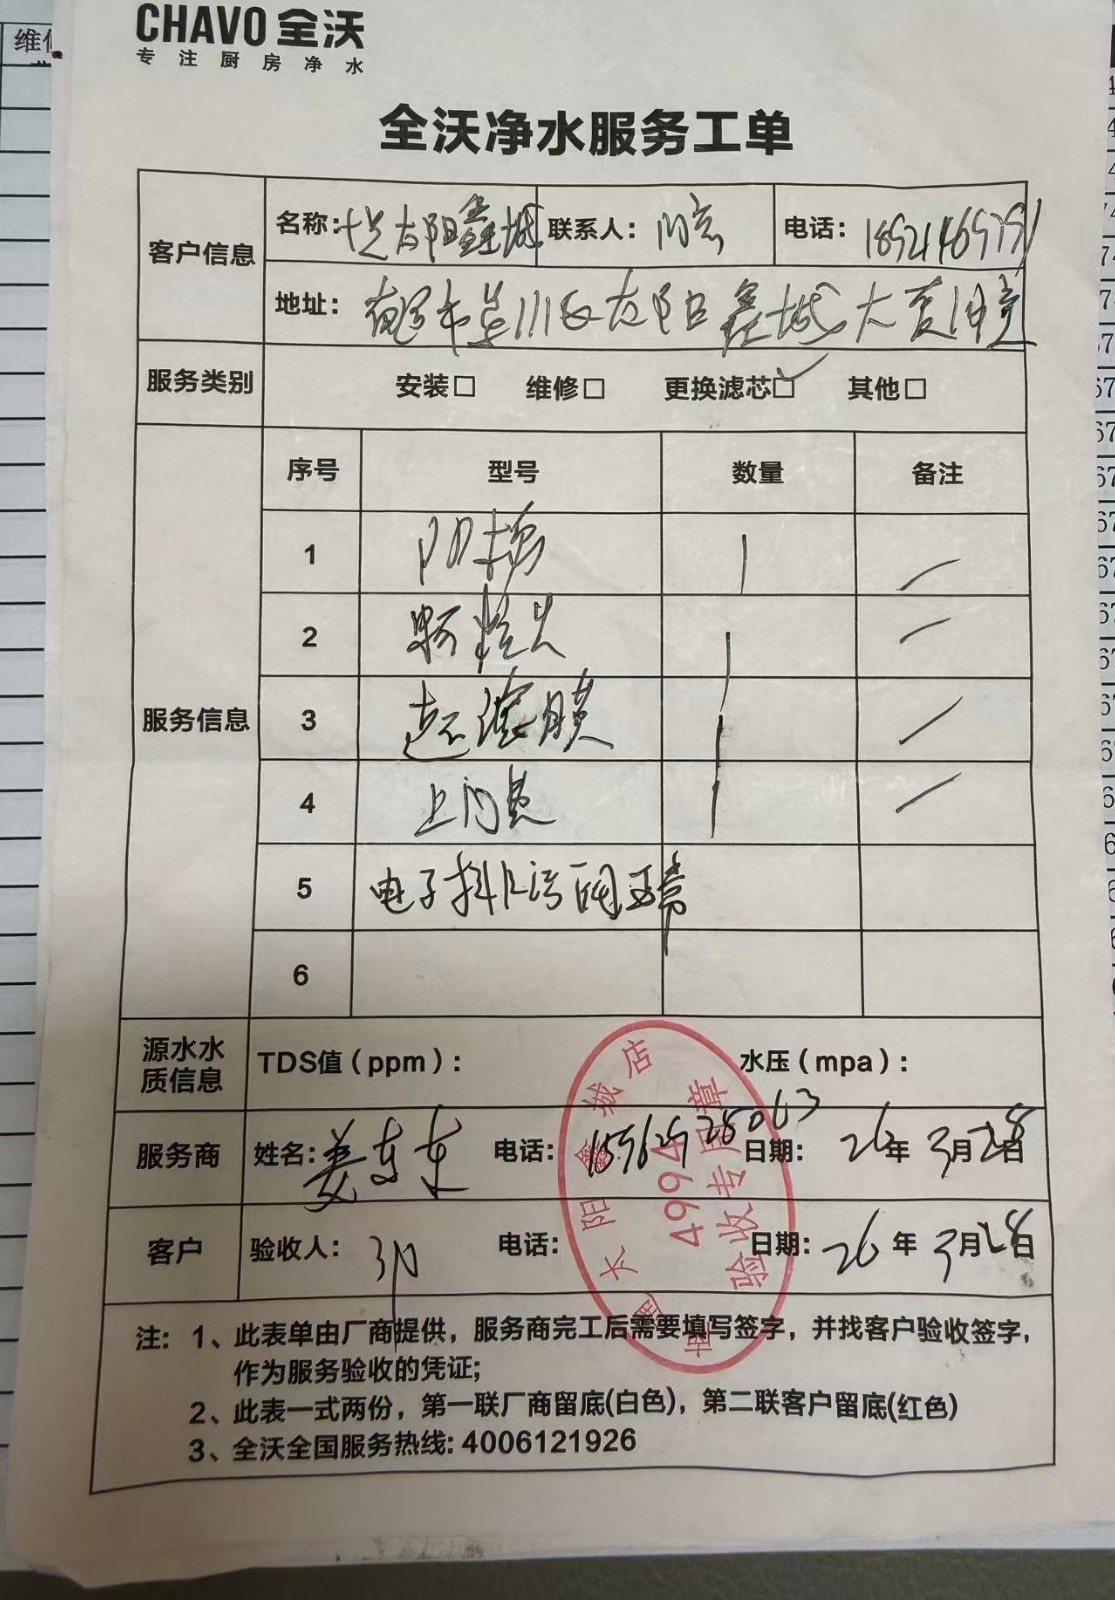 CHAVO 全沃
专注厨房净水
全沃净水服务工单
客户信息
名称: 太阳鑫城
联系人:
电话:
地址: 太阳鑫城大
服务类别
安装□ 维修□ 更换滤芯□✓ 其他□
服务信息
序号 型号 数量 备注
1 阳树 1 /
2 颗粒炭 1 /
3 超滤膜 1 /
4 上门费 1 /
5 电子排污阀正常
6
源水水质信息
TDS值（ppm）:
水压（mpa）:
服务商
姓名: 姜东东
电话:
日期: 26年3月28日
客户
验收人:
电话:
日期: 26年3月28日
太阳鑫城店
4994
验收专用章
注: 1、此表单由厂商提供，服务商完工后需要填写签字，并找客户验收签字，
作为服务验收的凭证;
2、此表一式两份，第一联厂商留底(白色)，第二联客户留底(红色)
3、全沃全国服务热线: 4006121926